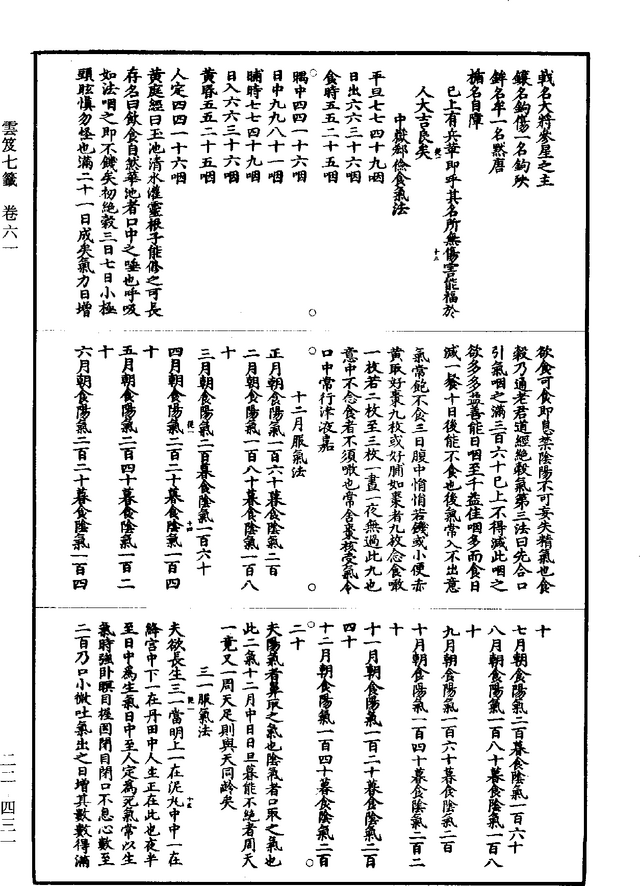 雲笈七籤 卷六一
二二-四三一
戟名大將參星之主
鑲名鉤傷一名鉤殃
鉾名牟一名默唐
楯名自障
已上有兵革即呼其名所無傷害能福於
人大吉良矣
中嶽郄儉食氣法
平旦七七四十九咽
日出六六三十六咽
食時五五二十五咽
隅中四四一十六咽
日中九九八十一咽
晡時七七四十九咽
日入六六三十六咽
黃昏五五二十五咽
人定四四一十六咽
黃庭經曰玉池清水灌靈根子能修之可長
存名曰飲食自然華池者口中之唾也呼吸
如法咽之即不饑矣初絕穀三日七日小極
頭眩慎勿怪也滿二十一日成矣氣力日增
欲食可食即息禁陰陽不可妄失精氣也食
穀乃通老君道經絕穀氣第三法曰先合口
引氣咽之滿三百六十已上不得減此咽之
欲多多益善能日咽至千益佳咽多而食日
減一餐十日後能不食也後氣常入不出意
氣常飽不食三日腹中悁悁若饑或小便赤
黃取好棗九枚或好脯如棗者九枚念食噉
一枚若二枚至三枚一晝一夜無過此九也
意中不念食者不須噉也常含棗核受氣令
口中常行津液嘉
十二月服氣法
正月朝食陽氣一百六十暮食陰氣二百
二月朝食陽氣一百八十暮食陰氣一百八
十
三月朝食陽氣二百暮食陰氣一百六十
四月朝食陽氣二百二十暮食陰氣一百四
十
五月朝食陽氣二百四十暮食陰氣一百二
十
六月朝食陽氣二百二十暮食陰氣一百四
十
七月朝食陽氣二百暮食陰氣一百六十
八月朝食陽氣一百八十暮食陰氣一百八
十
九月朝食陽氣一百六十暮食陰氣二百
十月朝食陽氣一百四十暮食陰氣二百二
十
十一月朝食陽氣一百二十暮食陰氣二百
四十
十二月朝食陽氣一百四十暮食陰氣二百
二十
夫陽氣者鼻取之氣也陰氣者口取之氣也
此二氣十二月中日日旦暮能不絕者周天
一竟又一周天足則與天同齡矣
三一服氣法
夫欲長生三一當明上一在泥丸中中一在
絳宮中下一在丹田中人生正在此也夜半
至日中為生氣日中至人定為死氣常以生
氣時強臥瞑目握固閉目閉口不息心數至
二百乃口小微吐氣出之日增其數數得滿